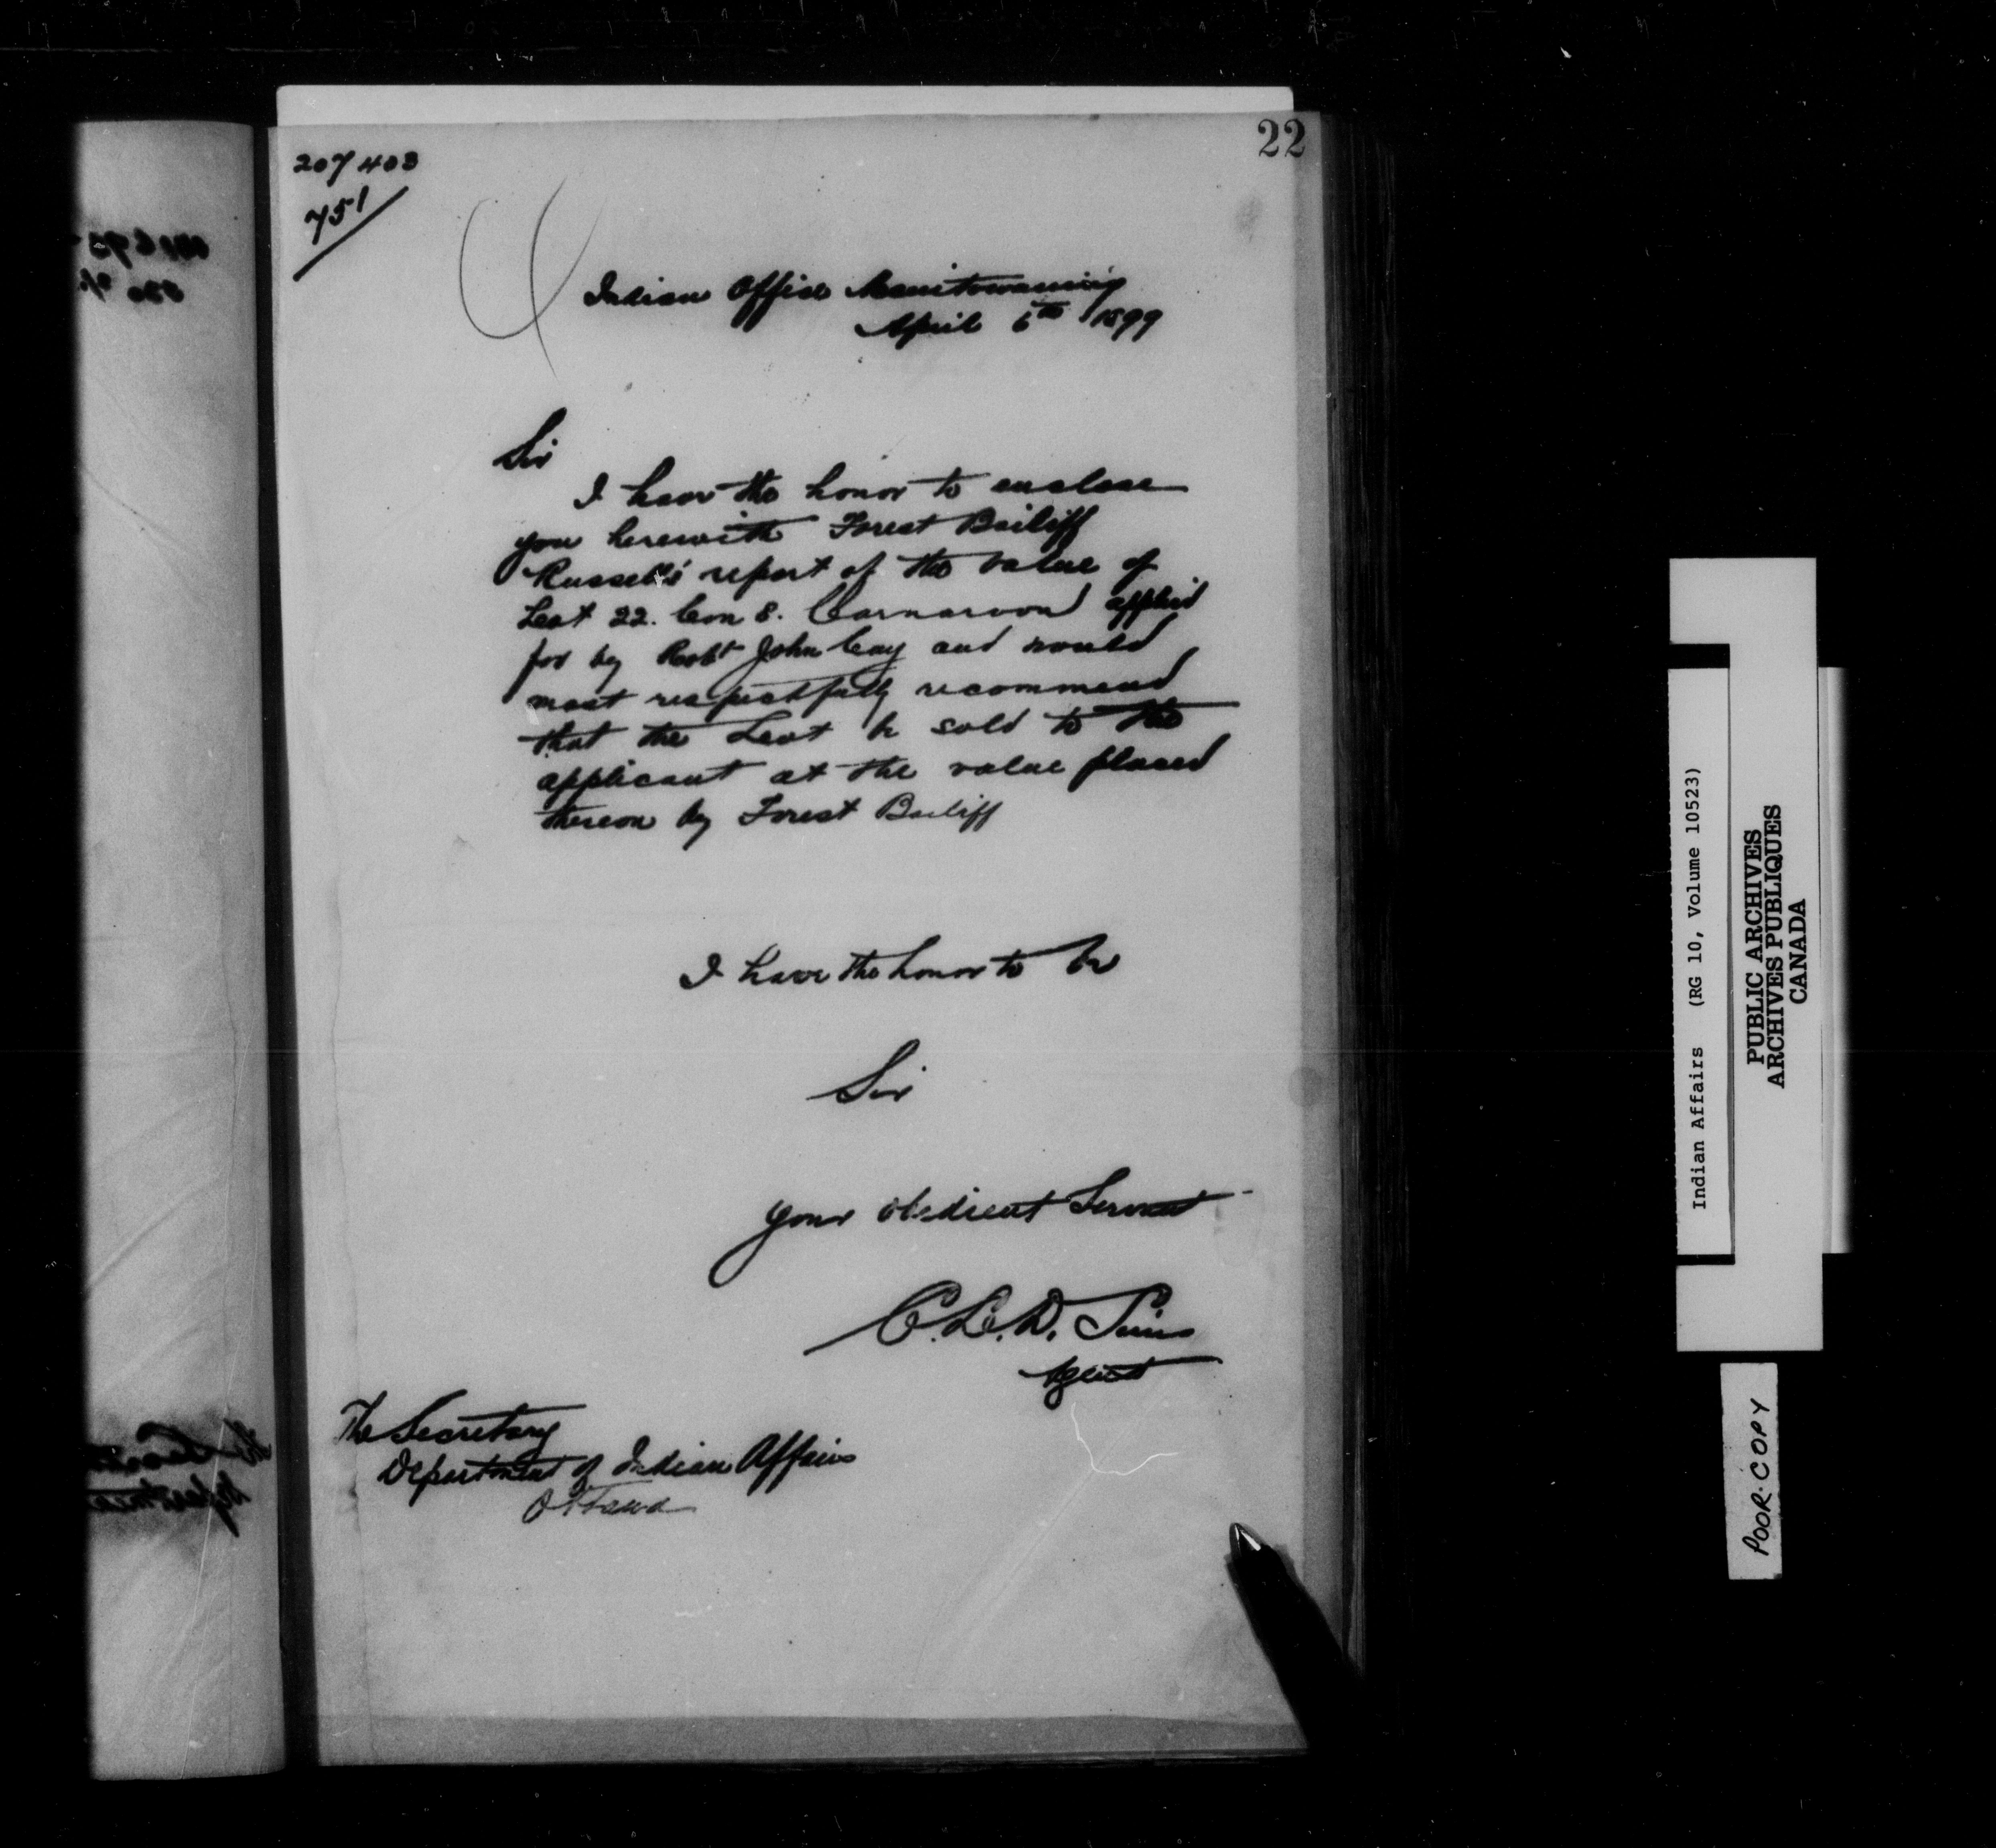 22
207403
751
Indian Office Manitowaning
April 6th 1899
Sir
I have the honor to enclose
you herewith Forest Bailiff
Russell's report of the value of
Lot 22. Con 8. Carnarvon applied
for by Robt John Cay and would
most respectfully recommend
that the Lot be sold to the
applicant at the value placed
thereon by Forest Bailiff
I have the honor to be
Sir
your obedient Servant
C.L.D. Sims
Agent
The Secretary
Department of Indian Affairs
Ottawa
Indian Affairs (RG 10, Volume 10523)
PUBLIC ARCHIVES
ARCHIVES PUBLIQUES
CANADA
POOR COPY